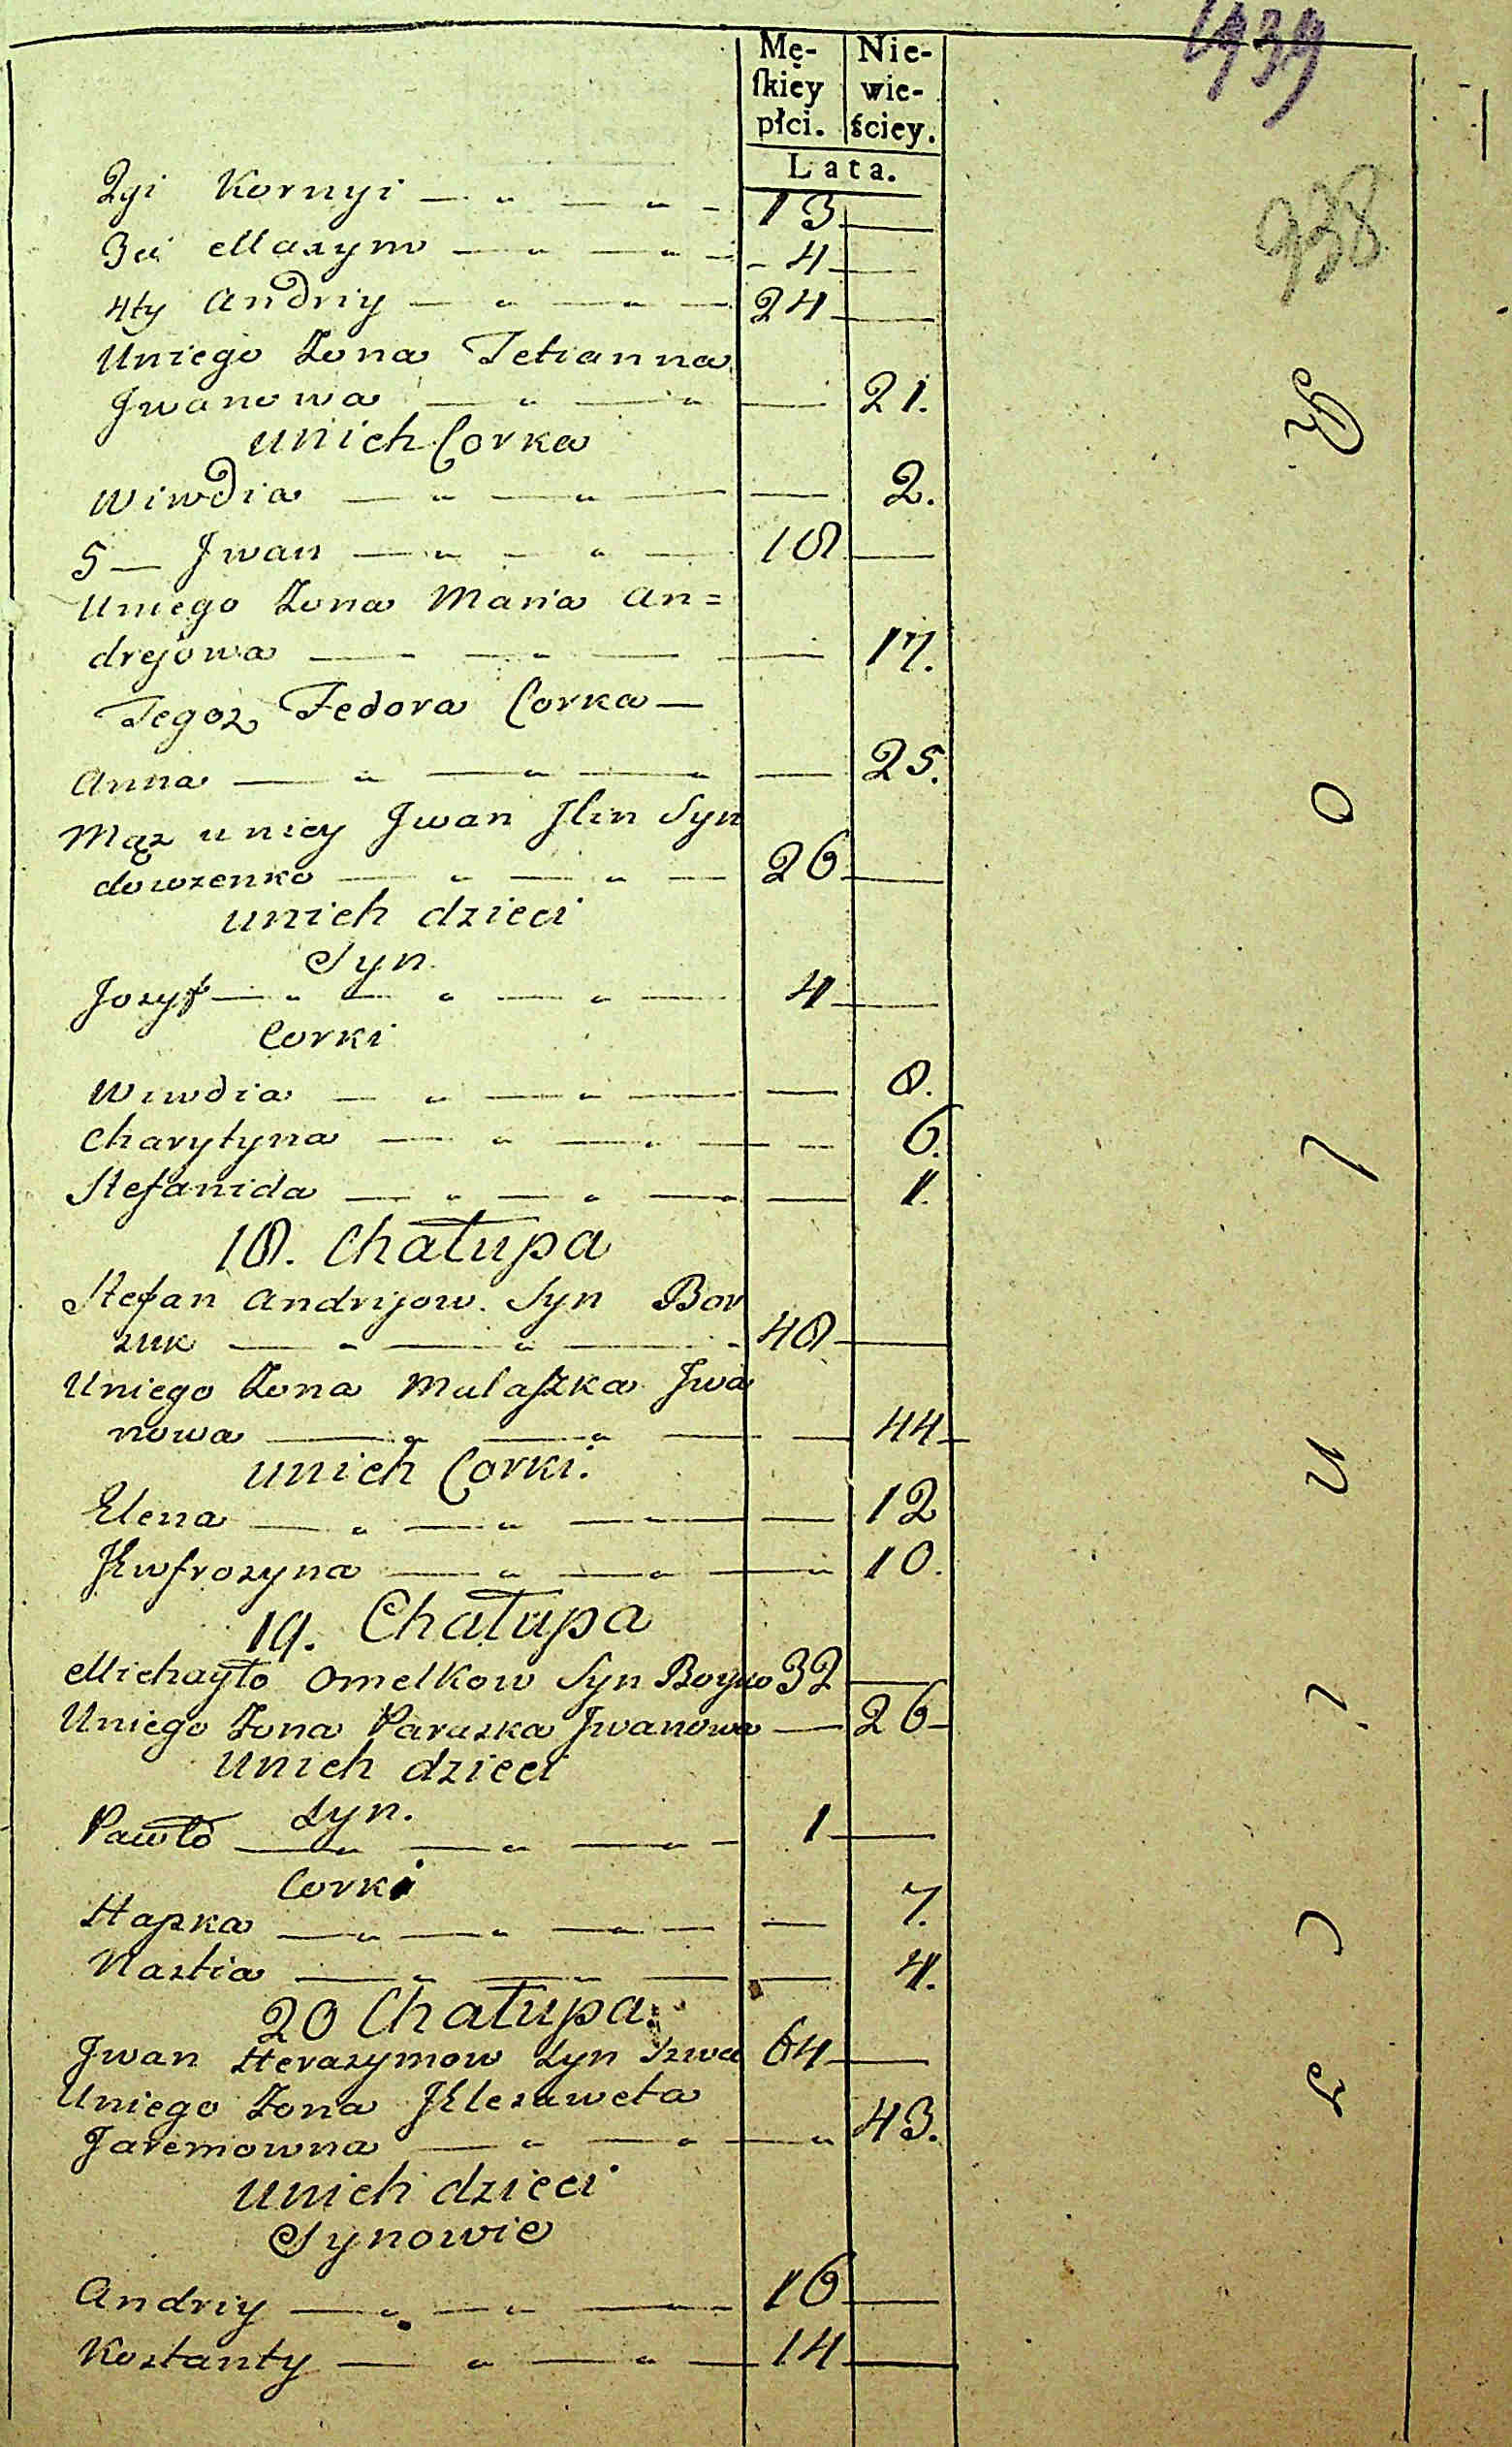 1939
938
Mę- Nie-
ſkiéy wie-
płci. ściey.
Lata.
2gi Kornyi 13
3ci Maxym 4
4ty Andriy 24
Uniego Żona Tetianna
Jwanowa 21.
unich Corka
Wiwdia 2.
5 — Jwan 18
Uniego Żona Maria An=
drejowa 17.
Tegoz Fedora Corka —
Anna 25.
Mąz u niey Jwan Jlin Syn
dowzenko 26
unich dzieci
Syn
Jozyf 4
Corki
Wiwdia 8.
Charytyna 6.
Stefanida 1.
18. Chałupa
Stefan Andrijow. Syn Bor
zuk 48
Uniego Żona Mulaszka Jwa
nowa 44
unich Corki.
Elena 12
Jewfrozyna 10.
19. Chałupa
Michayło Omelkow Syn Boyko 32
Uniego Żona Paraska Jwanowa 26
Unich dzieci
Syn.
Pawło 1
Corki
Hapka 7.
Nastia 4.
20 Chałupa.
Jwan Herazymow Syn 64
Uniego Żona Jelezaweta
Jaremowna 43.
Unich dzieci
Synowie
Andriy 16
Kostanty 14